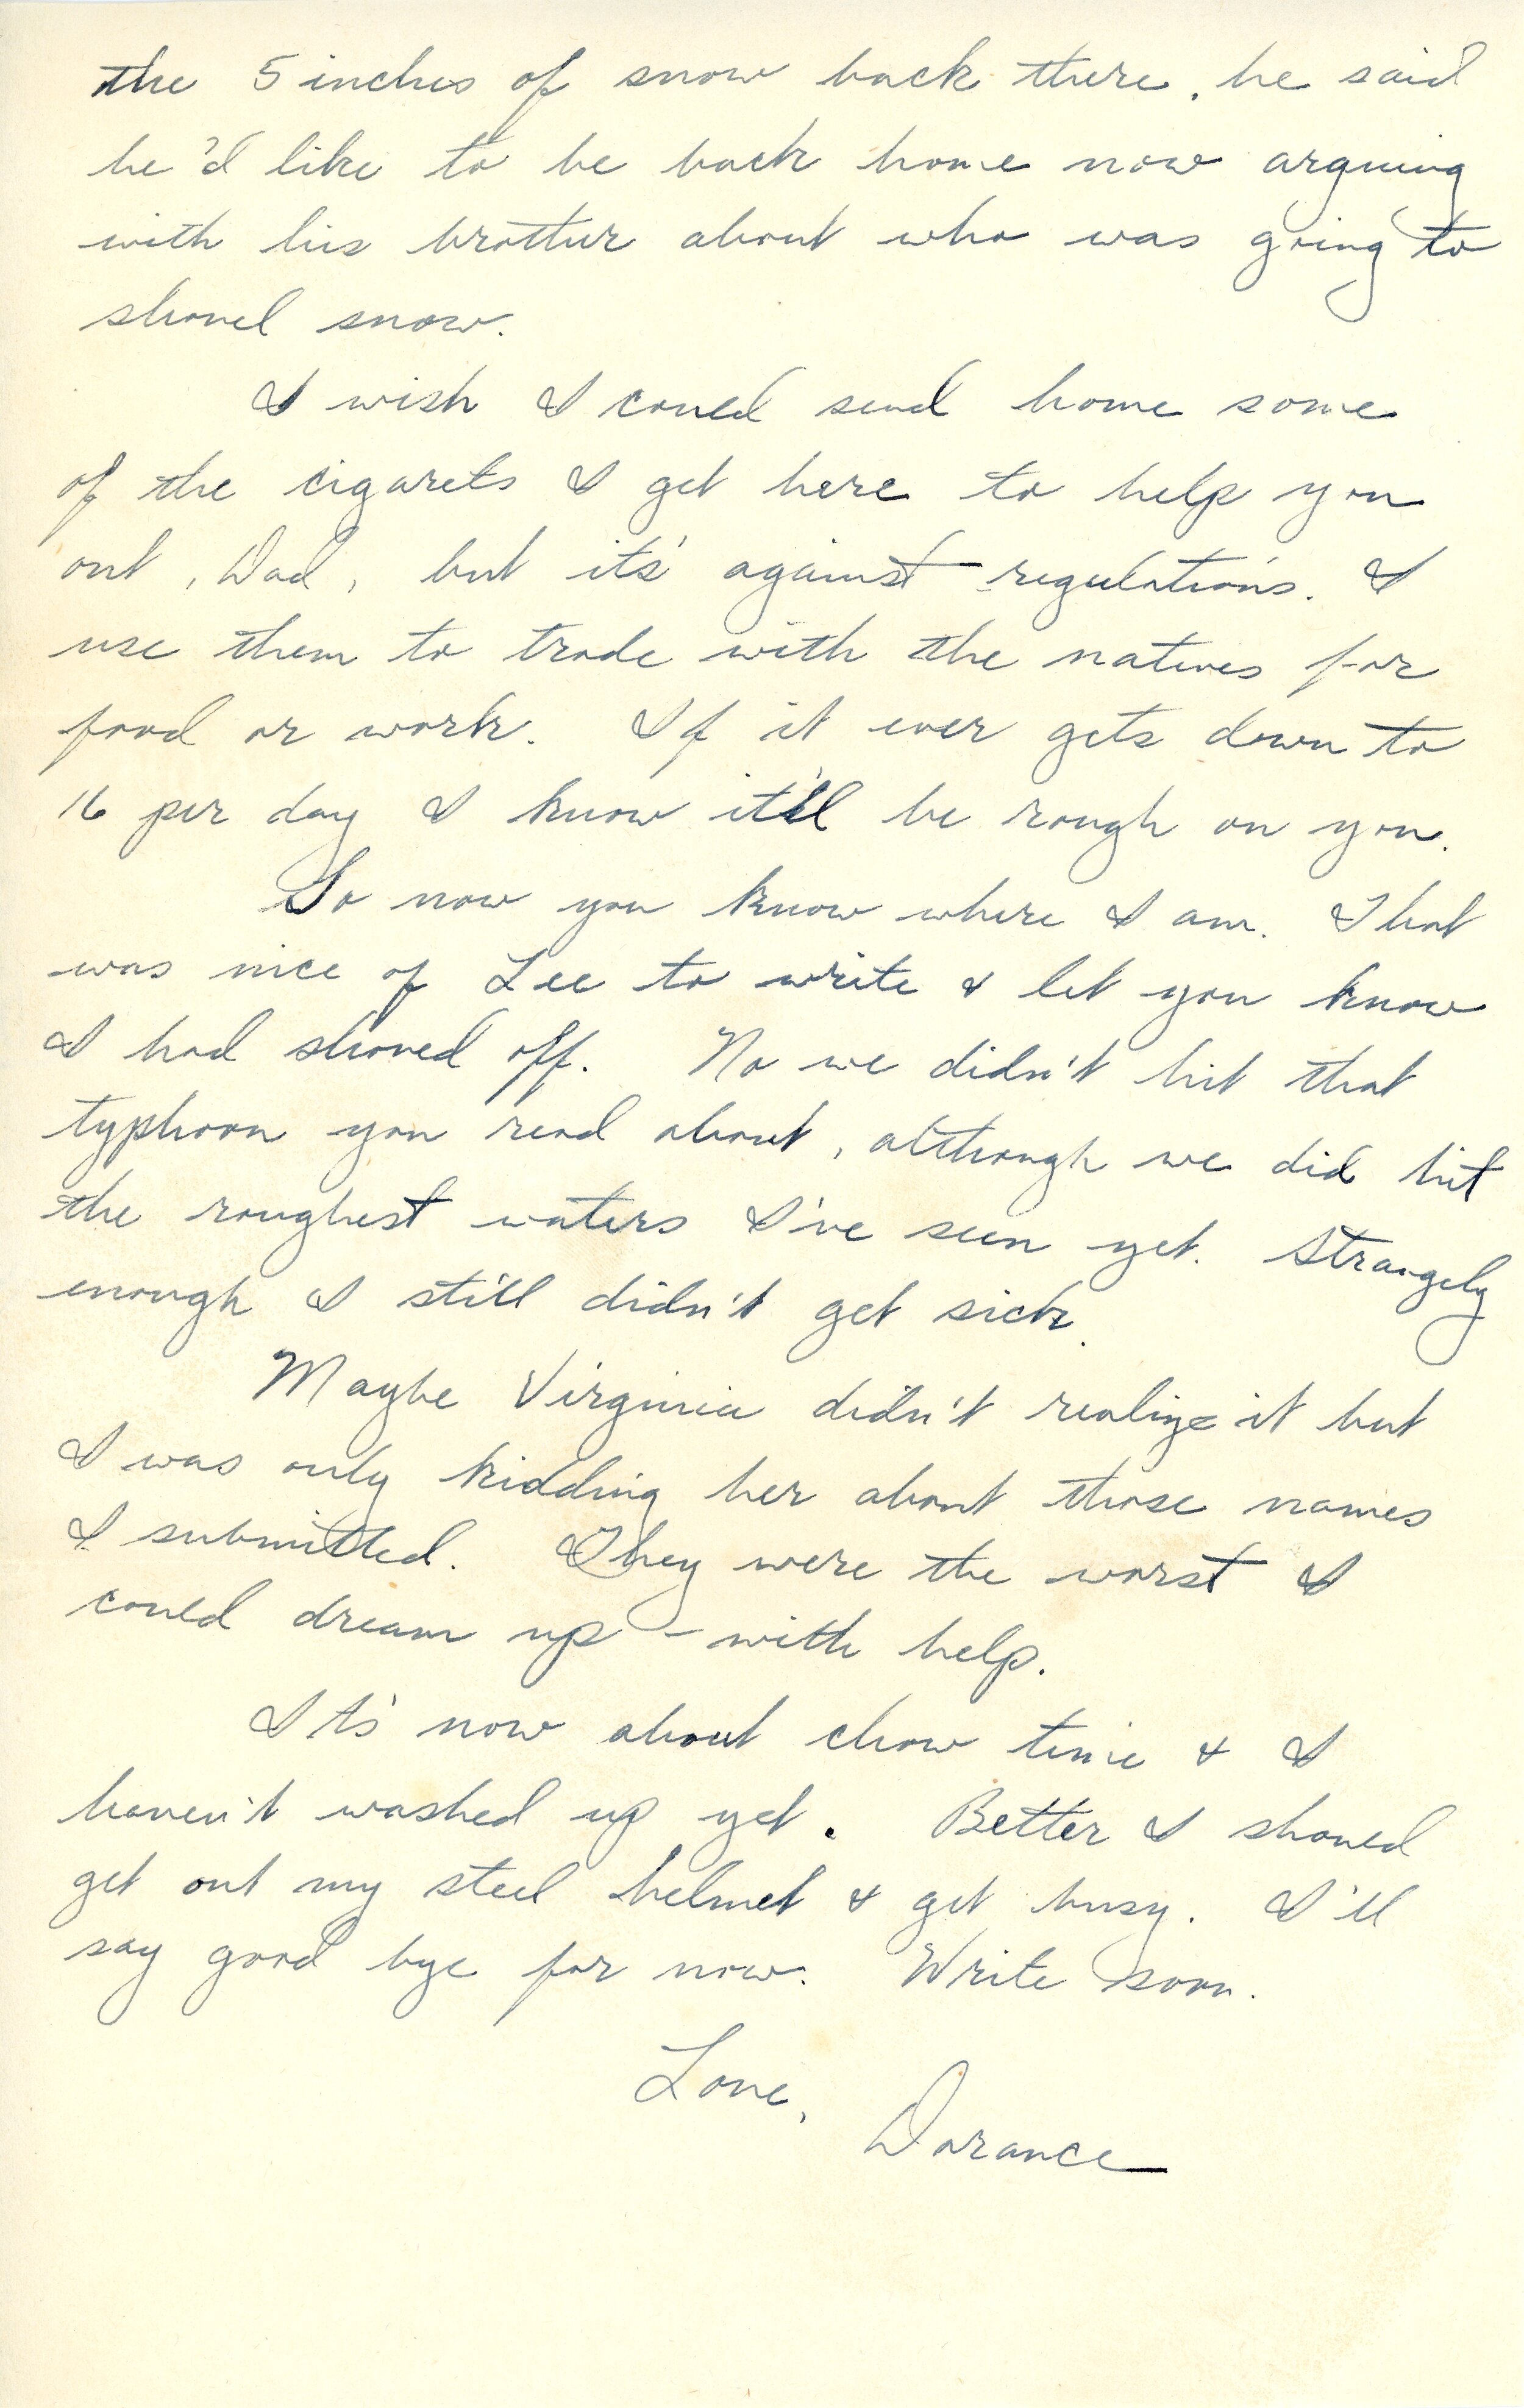 the 5 inches of snow back there, he said
he'd like to be back home now arguing
with his brother about who was going to
shovel snow.
I wish I could send home some
of the cigarets I get here to help you
out, Dad, but it's against regulations. I
use them to trade with the natives for
food or work. If it ever gets down to
16 per day I know it'll be rough on you.
So now you know where I am. That
was nice of Lee to write & let you know
I had shoved off. No we didn't hit that
typhoon you read about, although we did hit
the roughest waters I've seen yet. Strangely
enough I still didn't get sick.
Maybe Virginia didn't realize it but
I was only kidding her about those names
I submitted. They were the worst I
could dream up - with help.
It's now about chow time & I
haven't washed up yet. Better I should
get out my steel helmet & get busy. I'll
say good bye for now. Write soon.
Love,
Dorance